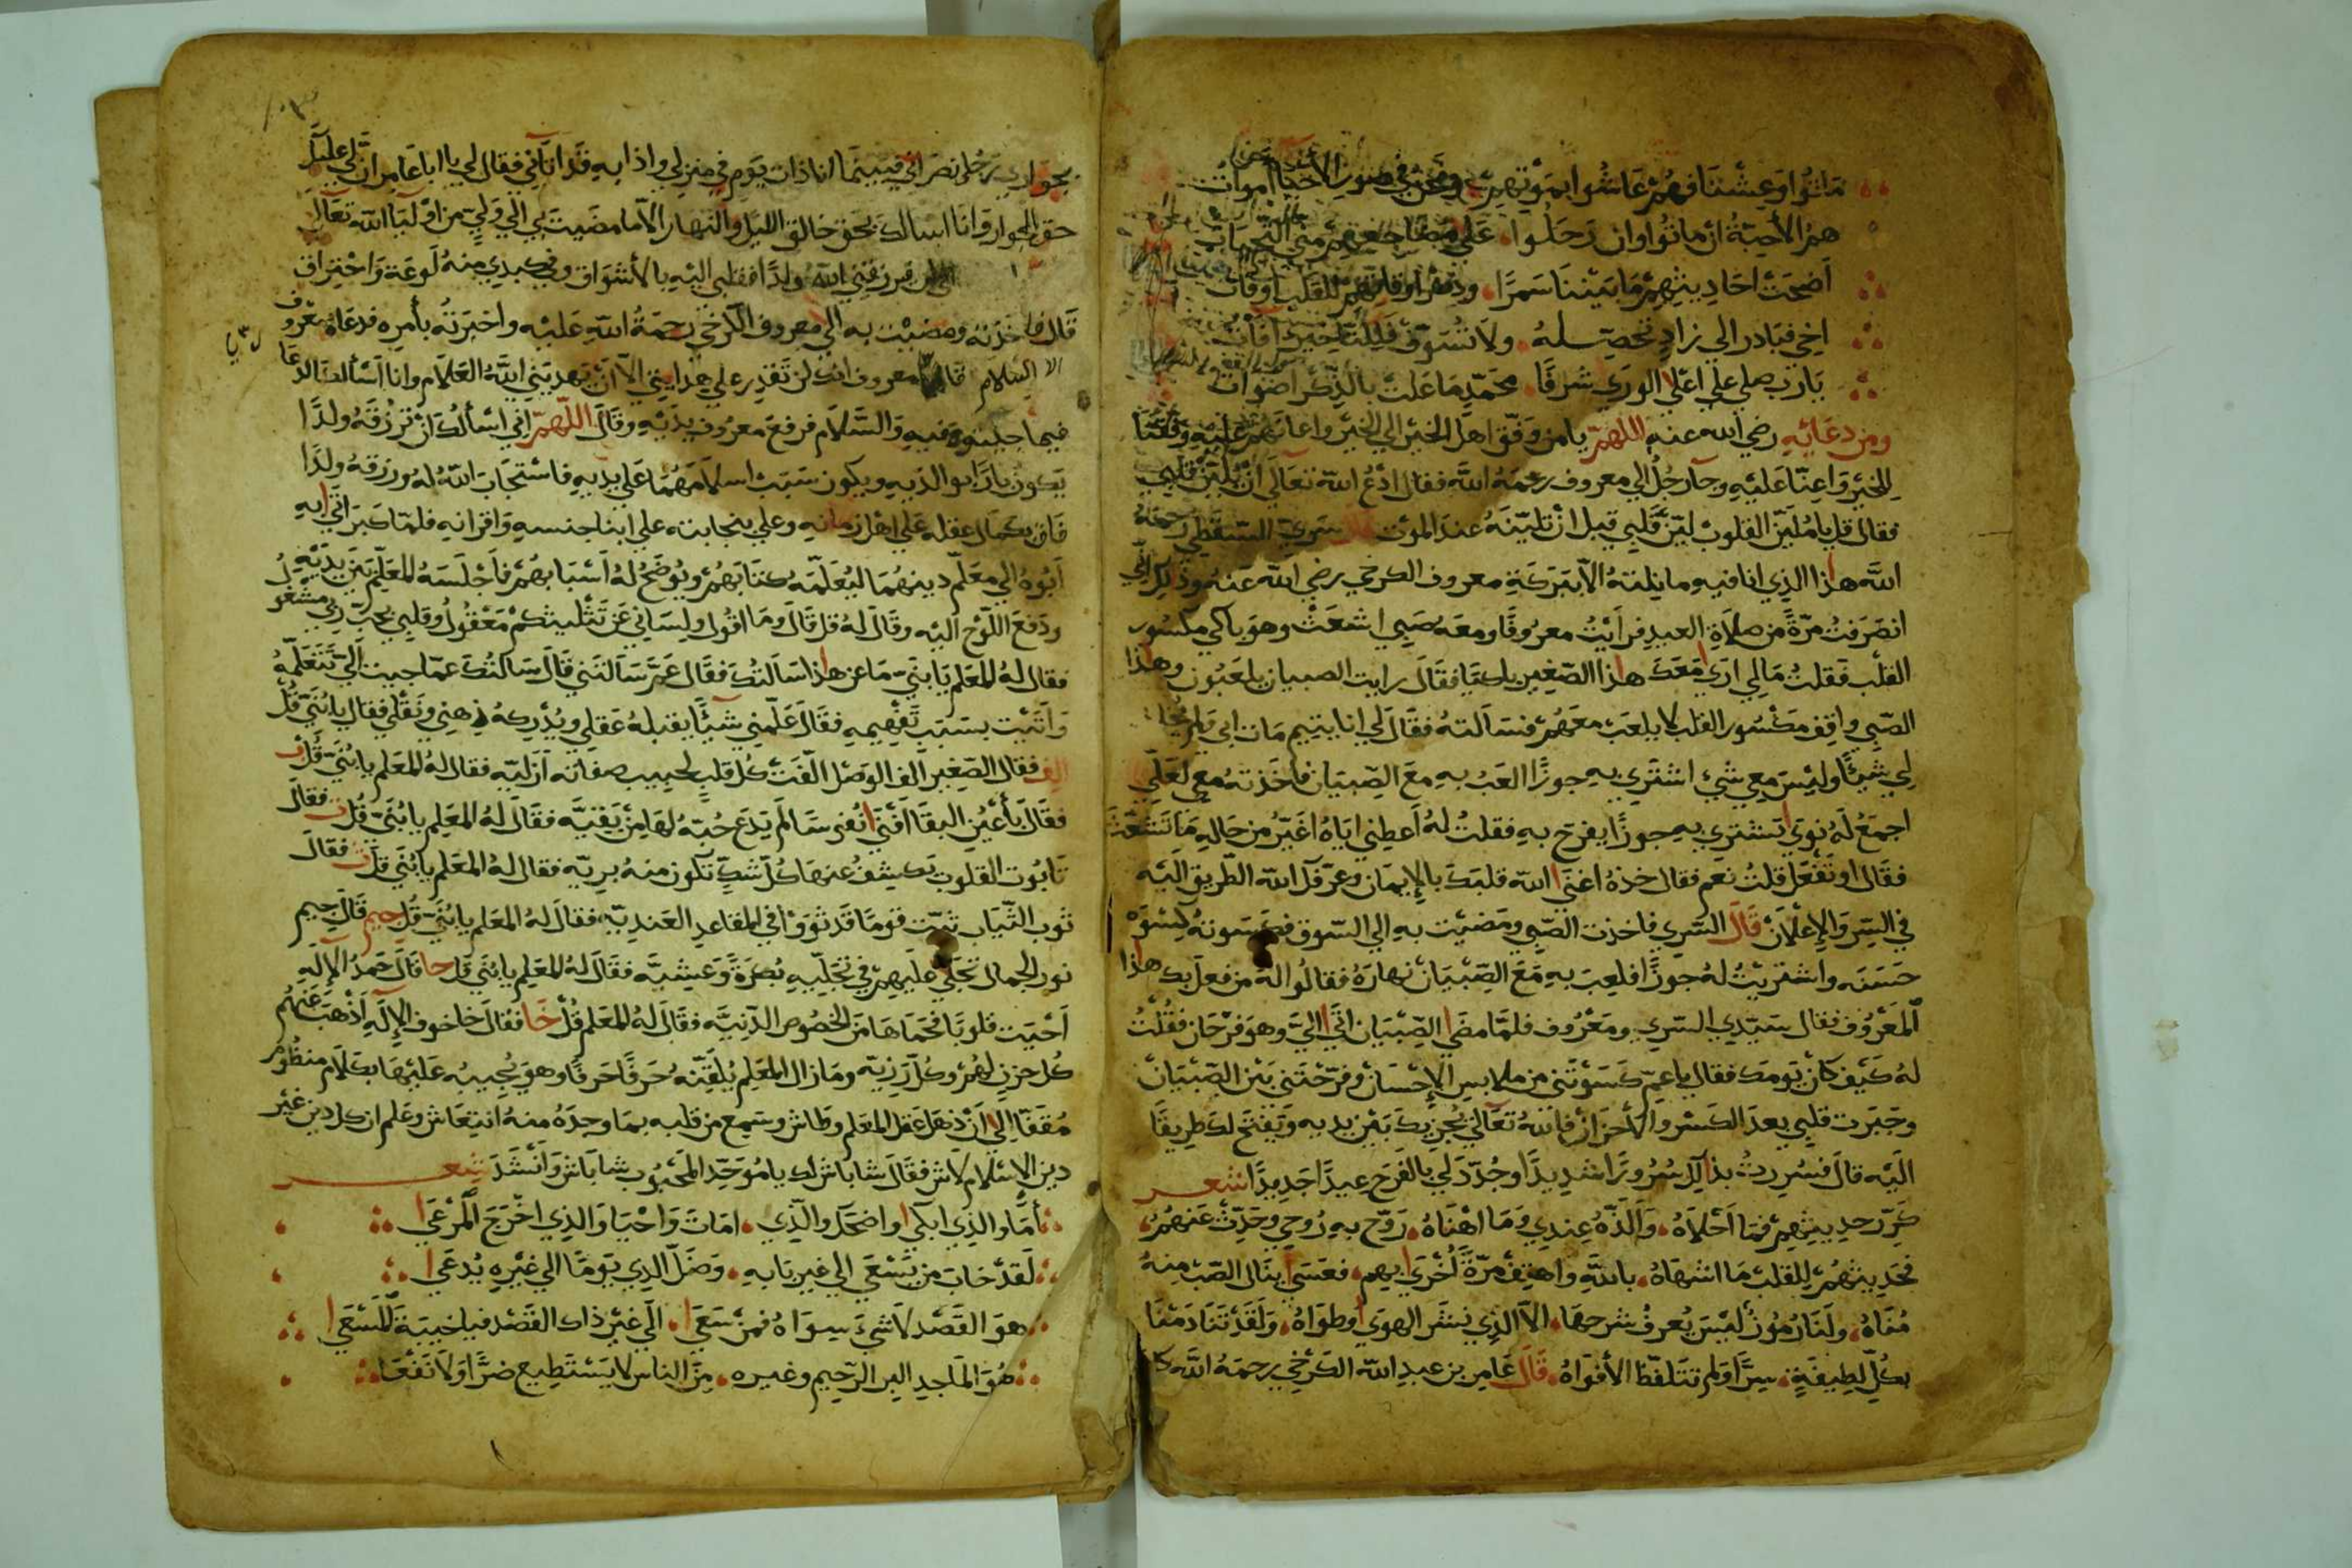 ماتوا وعشنا فهم عاشوا بموتهم ونحن في صور الأحيا أموات
هم الأحبة ان ماتوا وان رحلوا علي مضاجعهم مني التحيات
أضحت احاديثهم ما بيننا سمرًا للقلب اوقات
اخي فبادر الي زاد تحصله ولا تسوف فللتأخير آفات
يارب صلي علي اعلا الوري شرفًا محمد ما علت بالذكر اصوات
ومن دعائه رضي الله عنه اللهم يا من وفق اهل الخير الي الخير واعانهم عليه وفقنا
للخير واعنا عليه وجا رجل الي معروف رحمه الله فقال ادع الله تعالي ان يلين قلبي
فقال قل يا ملين القلوب لين قلبي قبل ان تلينه عند الموت قال سري السقطي رحمه
الله هذا الذي انا فيه ما نلته الا ببركة معروف الكرخي رضي الله عنه وذلك اني
انصرفت مرة من صلاة العيد فرأيت معروفًا ومعه صبي اشعث وهو باكي مكسور
القلب فقلت مالي اري معك هذا الصغير باكيا فقال رايت الصبيان يلعبون وهذا
الصبي واقف مكسور القلب لا يلعب معهم فسألته فقال لي انا يتيم مات ابي ولم
لي شيئًا وليس معي شيء اشتري به جوزًا العب به مع الصبيان فاخذته معي لعلي
اجمع له نوي يشتري به جوزًا يفرح به فقلت له أعطني اياه اغير من حاله ما تشعث
فقال او تفعل قلت نعم فقال خذه اغني الله قلبك بالإيمان وعرفك الله الطريق اليه
في السر والإعلان قال السري فاخذت الصبي ومضيت به الي السوق فكسوته كسوة
حسنه واشتريت له جوزًا فلعب به مع الصبيان نهاره فقالوا له من فعل بك هذا
المعروف فقال سيدي السري ومعروف فلما مضي الصبيان اتي الي وهو فرحان فقلت
له كيف كان يومك فقال يا عم كسوتني من ملابس الإحسان وفرحتني بين الصبيان
وجبرت قلبي بعد الكسر والأحزان فالله تعالي يجزيك بين يديه ويفتح لك طريقًا
اليه قال فسررت بذلك سرورًا شديدًا وجدد لي بالفرح عيدًا جديدًا شعر
كرر حديثهم فما احلاه والذه عندي وما اهناه روح به روحي وحدث عنهم
فحديثهم للقلب ما اشهاه بالله واهتف مرة اخري بهم فعسي ينال الصب منه
مناه ولنا رموز ليس يعرف شرحها الا الذي نشر الهوي وطواه ولقد تنادمنا
بكل لطيفة سرًا ولم تتلفظ الأفواه قال عامر بن عبد الله الكرخي رحمه الله كا
بجواري رجل نصراني فبينما انا ذات يوم في منزلي واذا به قد اتاني فقال لي يا ابا عامر ان لي عليك
حق الجوار وانا اسالك بحق خالق الليل والنهار الا ما مضيت بي الي ولي من اوليا الله تعالي
يرزقني الله ولدًا فقلبي اليه بالأشواق وفي كبدي منه لوعة واحتراق
قال فاخذته ومضيت به الي معروف الكرخي رحمة الله عليه واخبرته بأمره فدعاه معروف
الا السلام قال معروف انك لن تقدر علي هدايتي الا ان يهديني الله العلام وانا اسألك الدعا
فيما جيتك فيه والسلام فرفع معروف يديه وقال اللهم اني اسألك ان ترزقه ولدًا
يكون بارًا بوالديه ويكون سبب اسلامهما علي يديه فاستجاب الله له ورزقه ولدًا
فاق بكمال عقله علي اهل زمانه وعلي بنجابته علي ابنا جنسه واقرانه فلما كبر اتي به
أبوه الي معلم دينهما ليعلمه كتابهم ويوضح له اسبابهم فأجلسه المعلم بين يديه
ودفع اللوح اليه وقال له قل قال وما اقول ولساني عن تثليثكم معقول وقلبي بحب ربي مشغول
فقال له المعلم يا بني ما عن هذا سألتك فقال عم سألتني قال سألتك عما جيت الي تتعلمه
وأتيت بسبب تفهيمه فقال علمني شيئًا يقبله عقلي ويدركه ذهني ونقلي فقال يا بني قل
الف فقال الصغير الف الوصل الفت كل قلب لحبيب صفاته ازليه فقال له المعلم يا بني قل ب
فقال بأعين البقا أفني انفسا لم يدع حبه لها من بقيه فقال له المعلم يا بني قل ت فقال
تابوت القلوب تكشف عنها كل شك تكون منه بريه فقال له المعلم يا بني قل ث فقال
ثوب الثياب ثبت قوما قد ثووا في المقاعد العنديه فقال له المعلم يا بني قل جيم قال جيم
نور الجمال تجلي عليهم في تجليه بكرة وعشيه فقال له المعلم يا بني قل حا قال حمد الإله
أحيت قلوبًا فحماها من الخصوص الدنيه فقال له المعلم قل خا فقال خا خوف الإله أذهب عنهم
كل حزن لهم وكل رزيه وما زال المعلم يلقنه حرفًا حرفًا وهو يجيبه عليها بكلام منظوم
مقفا الي أن ذهل عقل المعلم وطاش وسمع من قلبه بما وجده منه انتعاش وعلم ان كل دين غير
دين الاسلام لاش فقال شاباش لك يا موحد المحبوب شاباش وأنشد شعر
أما والذي ابكي واضحك والذي امات واحيا والذي اخرج المرعي
لقد خاب من يسعي الي غير بابه وضل الذي يومًا الي غيره يدعي
هو القصد لا شيء سواه فمن سعي الي غير ذاك القصد فيا خيبة المسعي
هو الماجد البر الرحيم وغيره من الناس لا يستطيع ضرًا ولا نفعا